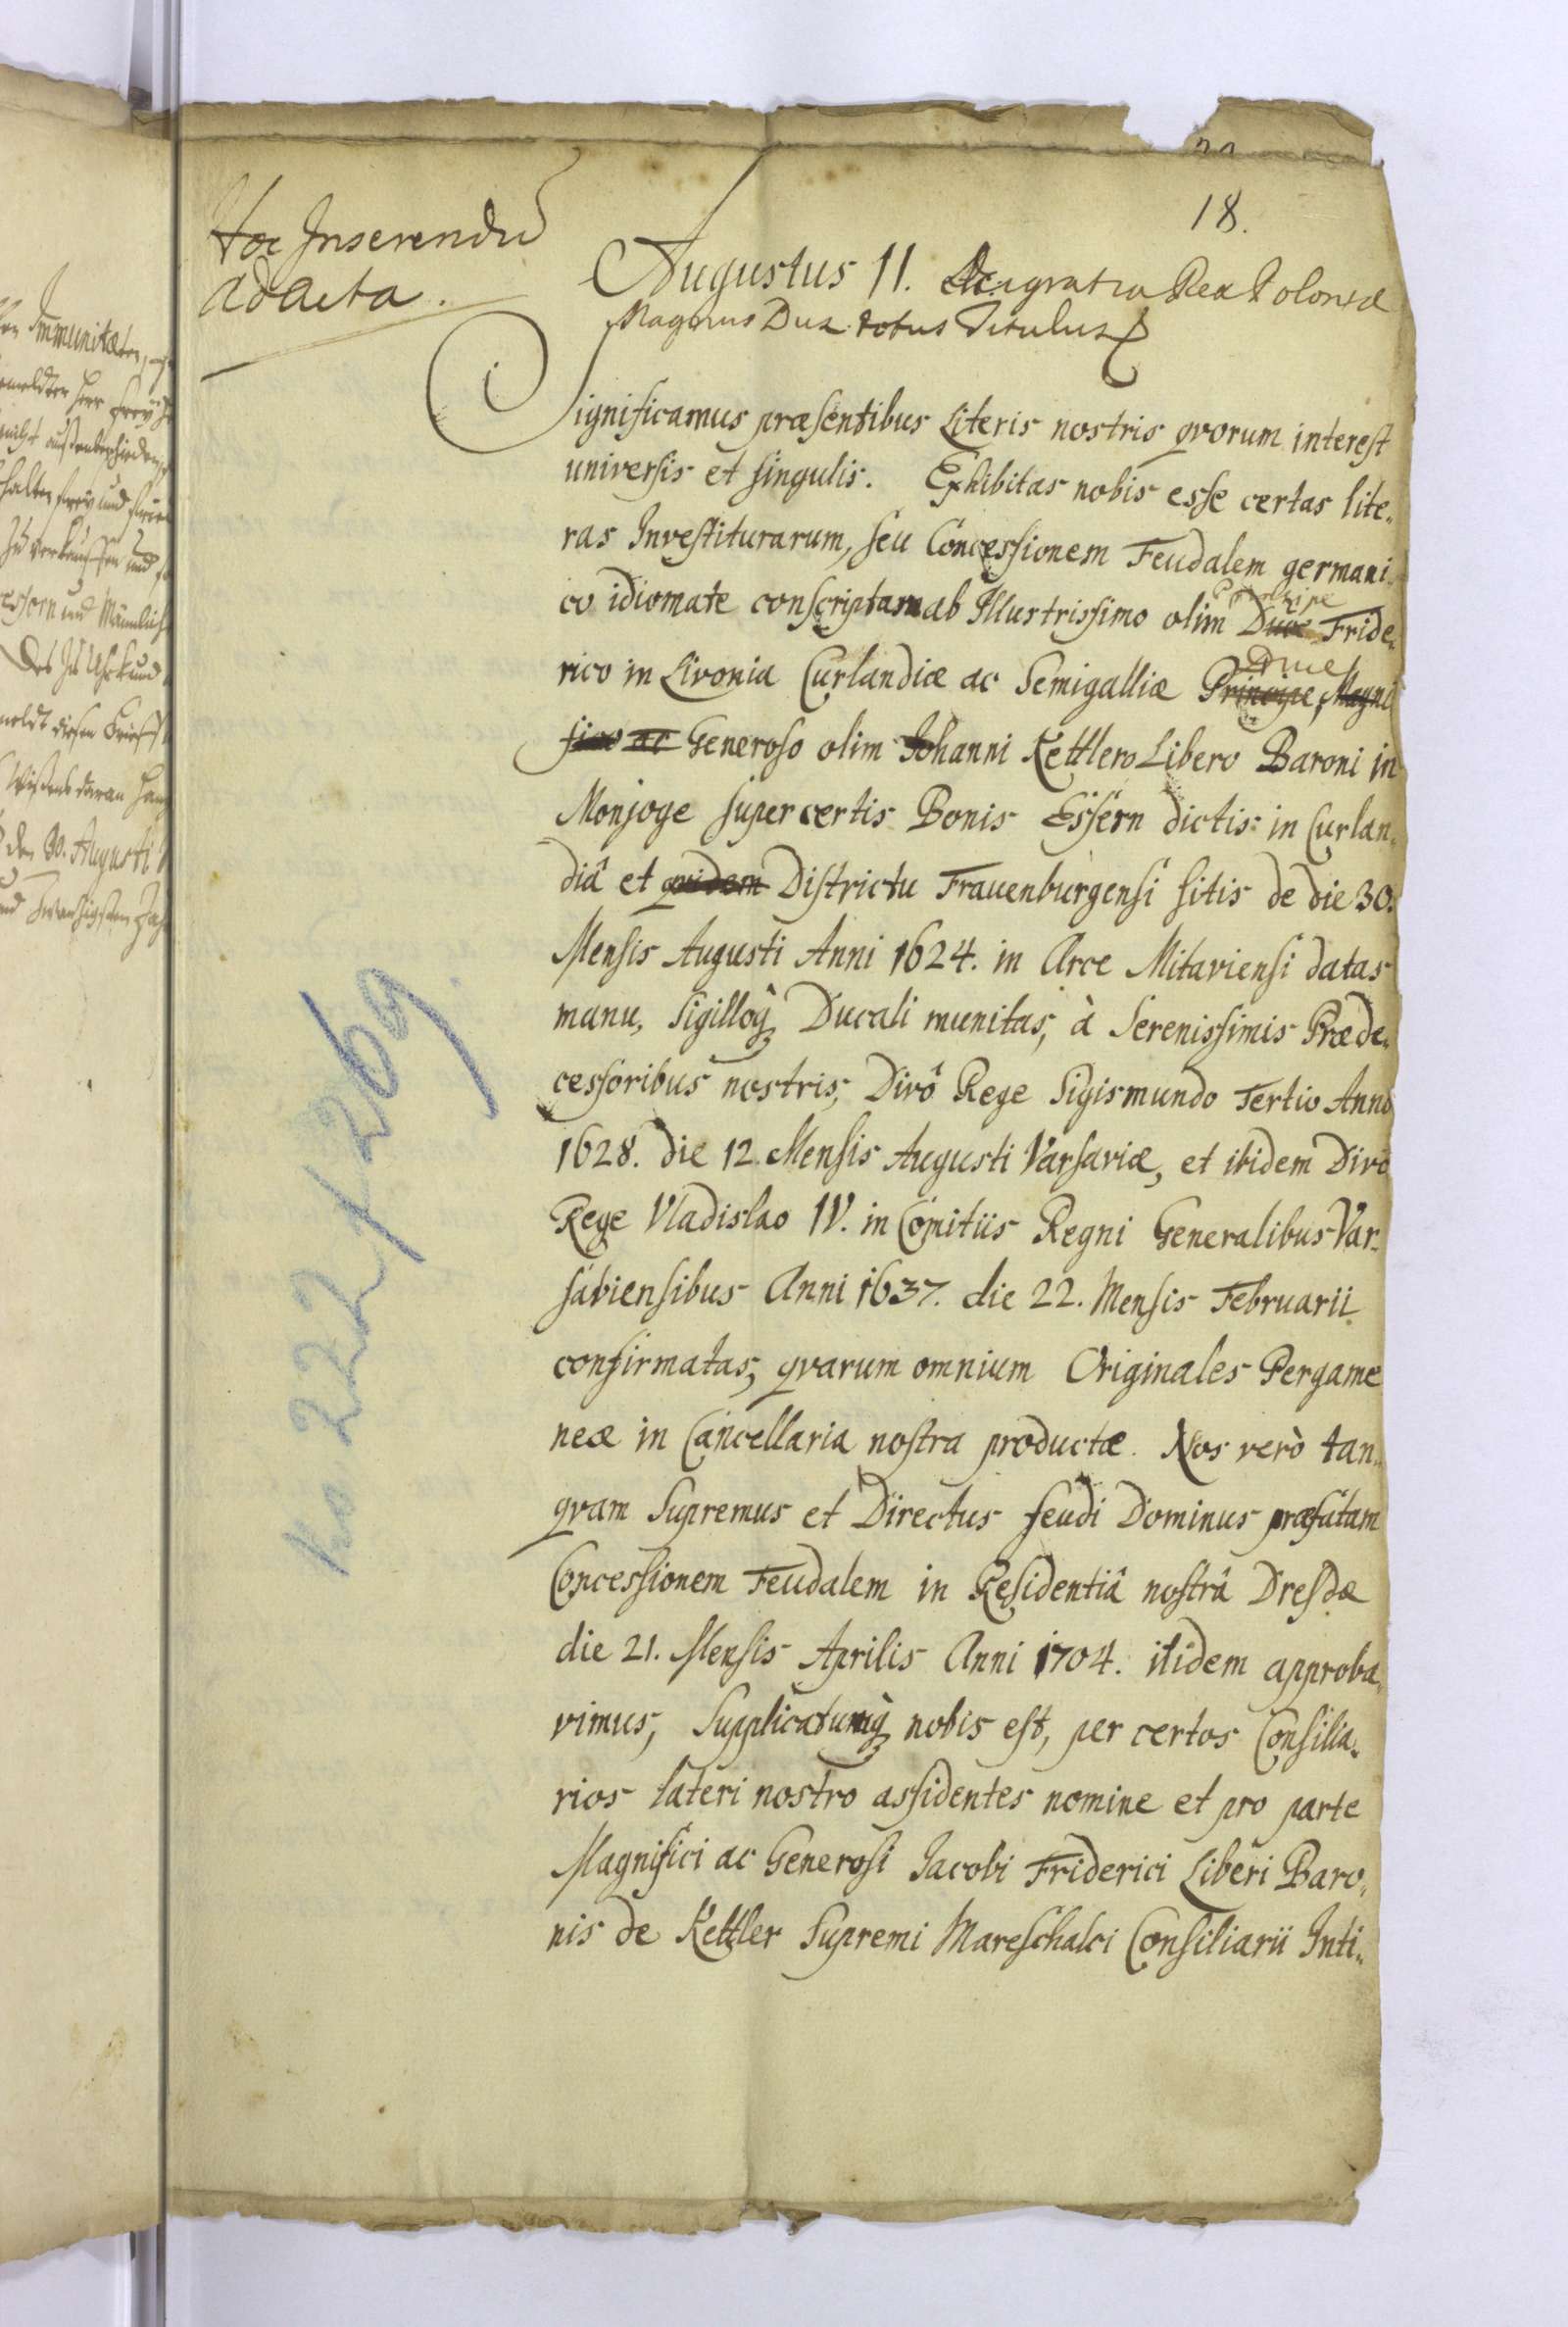 18.
Hoc Inserendũ
ad Acta.
Augustus II. Dei gratia Rex Poloniæ
Magnus Dux totus Titulus
Significamus præsentibus Literis nostris qvorum interest
universis et singulis. Exhibitas nobis esse certas lite-
ras Investiturarum, seu Concessionem Feudalem germani-
co idiomate conscriptam ab Illustrissimo olim Duce Principe Fride-
rico in Livonia Curlandiæ ac Semigalliæ Principe Duce, Magni
fico ac Generoso olim Johanni Kettlero Libero Baroni in
Monjoge super certis Bonis Essern dictis in Curlan-
diâ et quidem Districtu Frauenburgensi sitis de die 30.
Mensis Augusti Anni 1624. in Arce Mitaviensi datas
manu, sigilloq; Ducali munitas, à Serenissimis Præde-
cessoribus nostris, Divô Rege Sigismundo Tertio Anno
1628. die 12. Mensis Augusti Varsaviæ, et itidem Divo
Rege Vladislao IV. in Comitiis Regni Generalibus Var-
saviensibus Anni 1637. die 22. Mensis Februarii
confirmatas, qvarum omnium Originales Pergame
neæ in Cancellaria nostra productæ. Nos verò tan-
qvam Supremus et Directus feudi Dominus præfatam
Concessionem Feudalem in Residentiâ nostrâ Dresdæ
die 21. Mensis Aprilis Anni 1704. itidem approba-
vimus, Supplicatumq; nobis est, per certos Consilia-
rios lateri nostro assidentes nomine et pro parte
Magnifici ac Generosi Jacobi Friderici Liberi Baro-
nis de Kettler Supremi Mareschalci Consiliarii Inti-
No 222/269
Immunitæten,
und Männlich
Des zu Uhrkund
den 30. Augusti